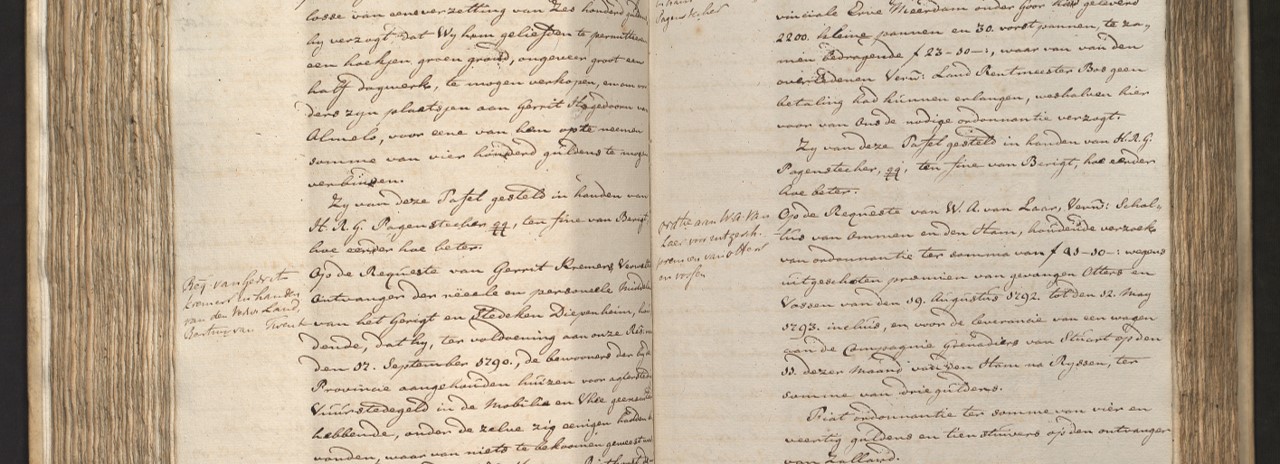 losse van eene verzetting van Zes honderd
hy verzogt dat Wy hem geliefden te permitteeren
een hoekjen groen grond, ongeveer groot een
half dagwerk, te mogen verkopen, en om
ders zyn plaatsjen aan Gerrit Hagedoorn van
Almelo, voor eene van hem op te neemen
somme van vier honderd guldens te mogen
verbinden.
Zy van deze Tafel gesteld in handen van
H. R. G. Pagenstecher, ten fine van Berigt,
hoe eerder hoe beter.
Req. van Gerrit
Kremers in handen
van den Verw. Land
Rentmr. van Twent
Op de Requeste van Gerrit Kremers, Verwalter
Ontvanger der reëele en personeele Middelen
van het Gerigt en Stedeken Diepenheim, hou
dende, dat hy, ter voldoening aan onze Res:
den 17. September 1790., de bewooners der
Provincie aangehouden huizen voor agterstedig
Vuurstedegeld in de Mobilie en Vhee geexecuteerd
hebbende, onder de zelve zig eenigen hadden
vonden, waar van niets te bekoomen geweest
Pagenstecher
vinciale Erve Meerdam onder Goor had geleverd
2200. kleine pannen en 30. vorstpannen, te za,,
men bedragende f 23-10-:, waar van van den
overledenen Verw: Land Rentmeester Bos geen
betaling had kunnen erlangen, weshalven hier
voor van Ons de nodige ordonnantie verzogt.
Zy van deze Tafel gesteld in handen van H. R. G.
Pagenstecher, ten fine van Berigt, hoe eerder
hoe beter.
ordtie aan W. A. van
Laer voor uitgesch.
premien van Otters
en vossen
Op de Requeste van W. A. van Laar, Verw: Schol-
tus van Ommen en den Ham, houdende verzoek
van ordonnantie ter somma van f 41-10-: wegens
uitgeschoten premien van gevangen Otters en
Vossen van den 19. Augustus 1792. tot den 12. May
1793. incluis, en voor de leverancie van een wagen
aan de Compagnie Grenadiers van Stuart op den
11. dezer Maand van den Ham na Ryssen, ter
somme van drie guldens.
Fiat ordonnantie ter somme van vier en
veertig guldens en tien stuivers op den ontvanger
van Zalland.